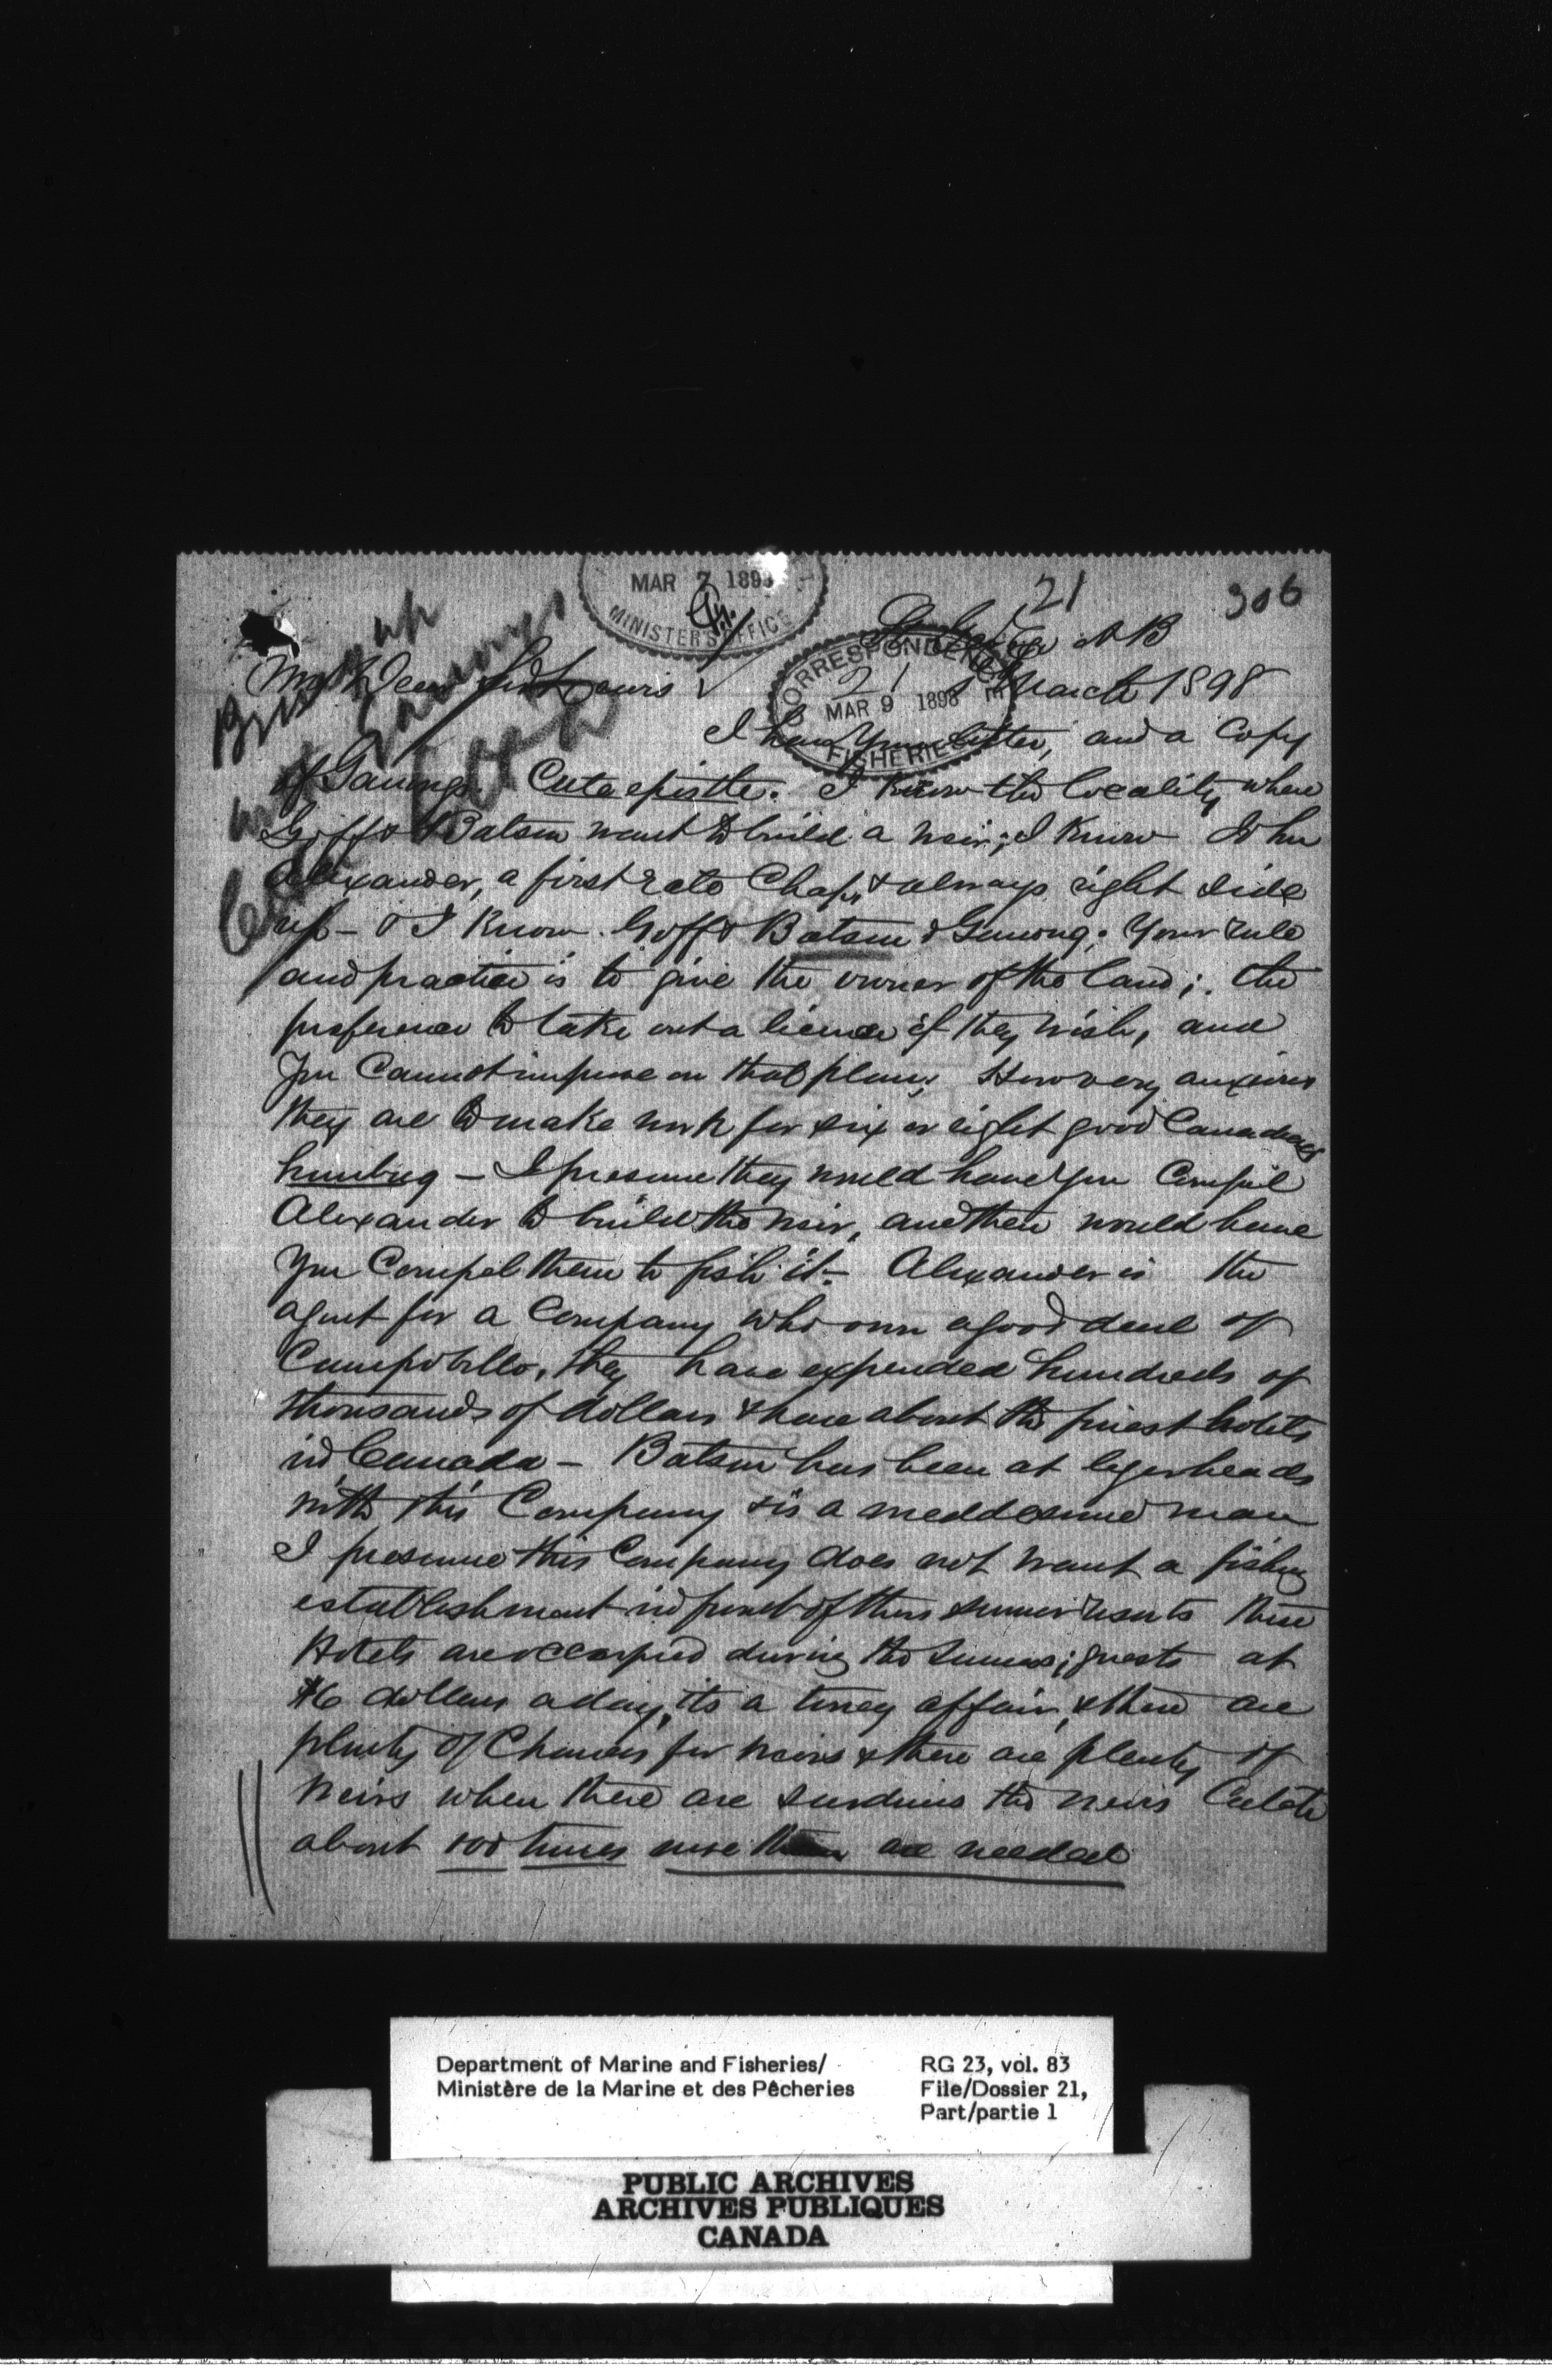 MAR 7 1898
MINISTER'S OFFICE
21
306
St George NB
CORRESPONDENCE
21
MAR 9 1898
FISHERIES
March 1898
My Dear Sir Louis
Bring up
Ganongs
and
I have your letter, and a Copy
of Ganongs. Cute epistle. I know the locality where
Goff & Batson want to build a weir; I know John
Alexander, a first rate Chap, & always right side
up - & I know Goff & Batson & Ganong; Your rule
and practice is to give the owner of the land; the
preference to take out a licence if they wish, and
You Cannot improve on that plan, How very anxious
they are to make work for six or eight good Canadians
humbug - I presume they would have you Compel
Alexander to build the weir, and then would have
You Compel them to fish it - Alexander is the
agent for a Company who own a good deal of
Campobello, they have expended hundreds of
thousands of dollars & have about the finest hotels
in Canada - Batson has been at logerheads
with this Company & is a meddesome man
I presume this Company does not want a fishing
establishment in front of their summer resorts These
Hotels are occupied during the Summer; guests at
$6 dollars a day, its a toney affair, & there are
plenty of Chances for weirs & there are plenty of
weirs when there are sardines the weirs Catch
about 100 times more than are needed
Department of Marine and Fisheries/
Ministère de la Marine et des Pêcheries
RG 23, vol. 83
File/Dossier 21,
Part/partie 1
PUBLIC ARCHIVES
ARCHIVES PUBLIQUES
CANADA